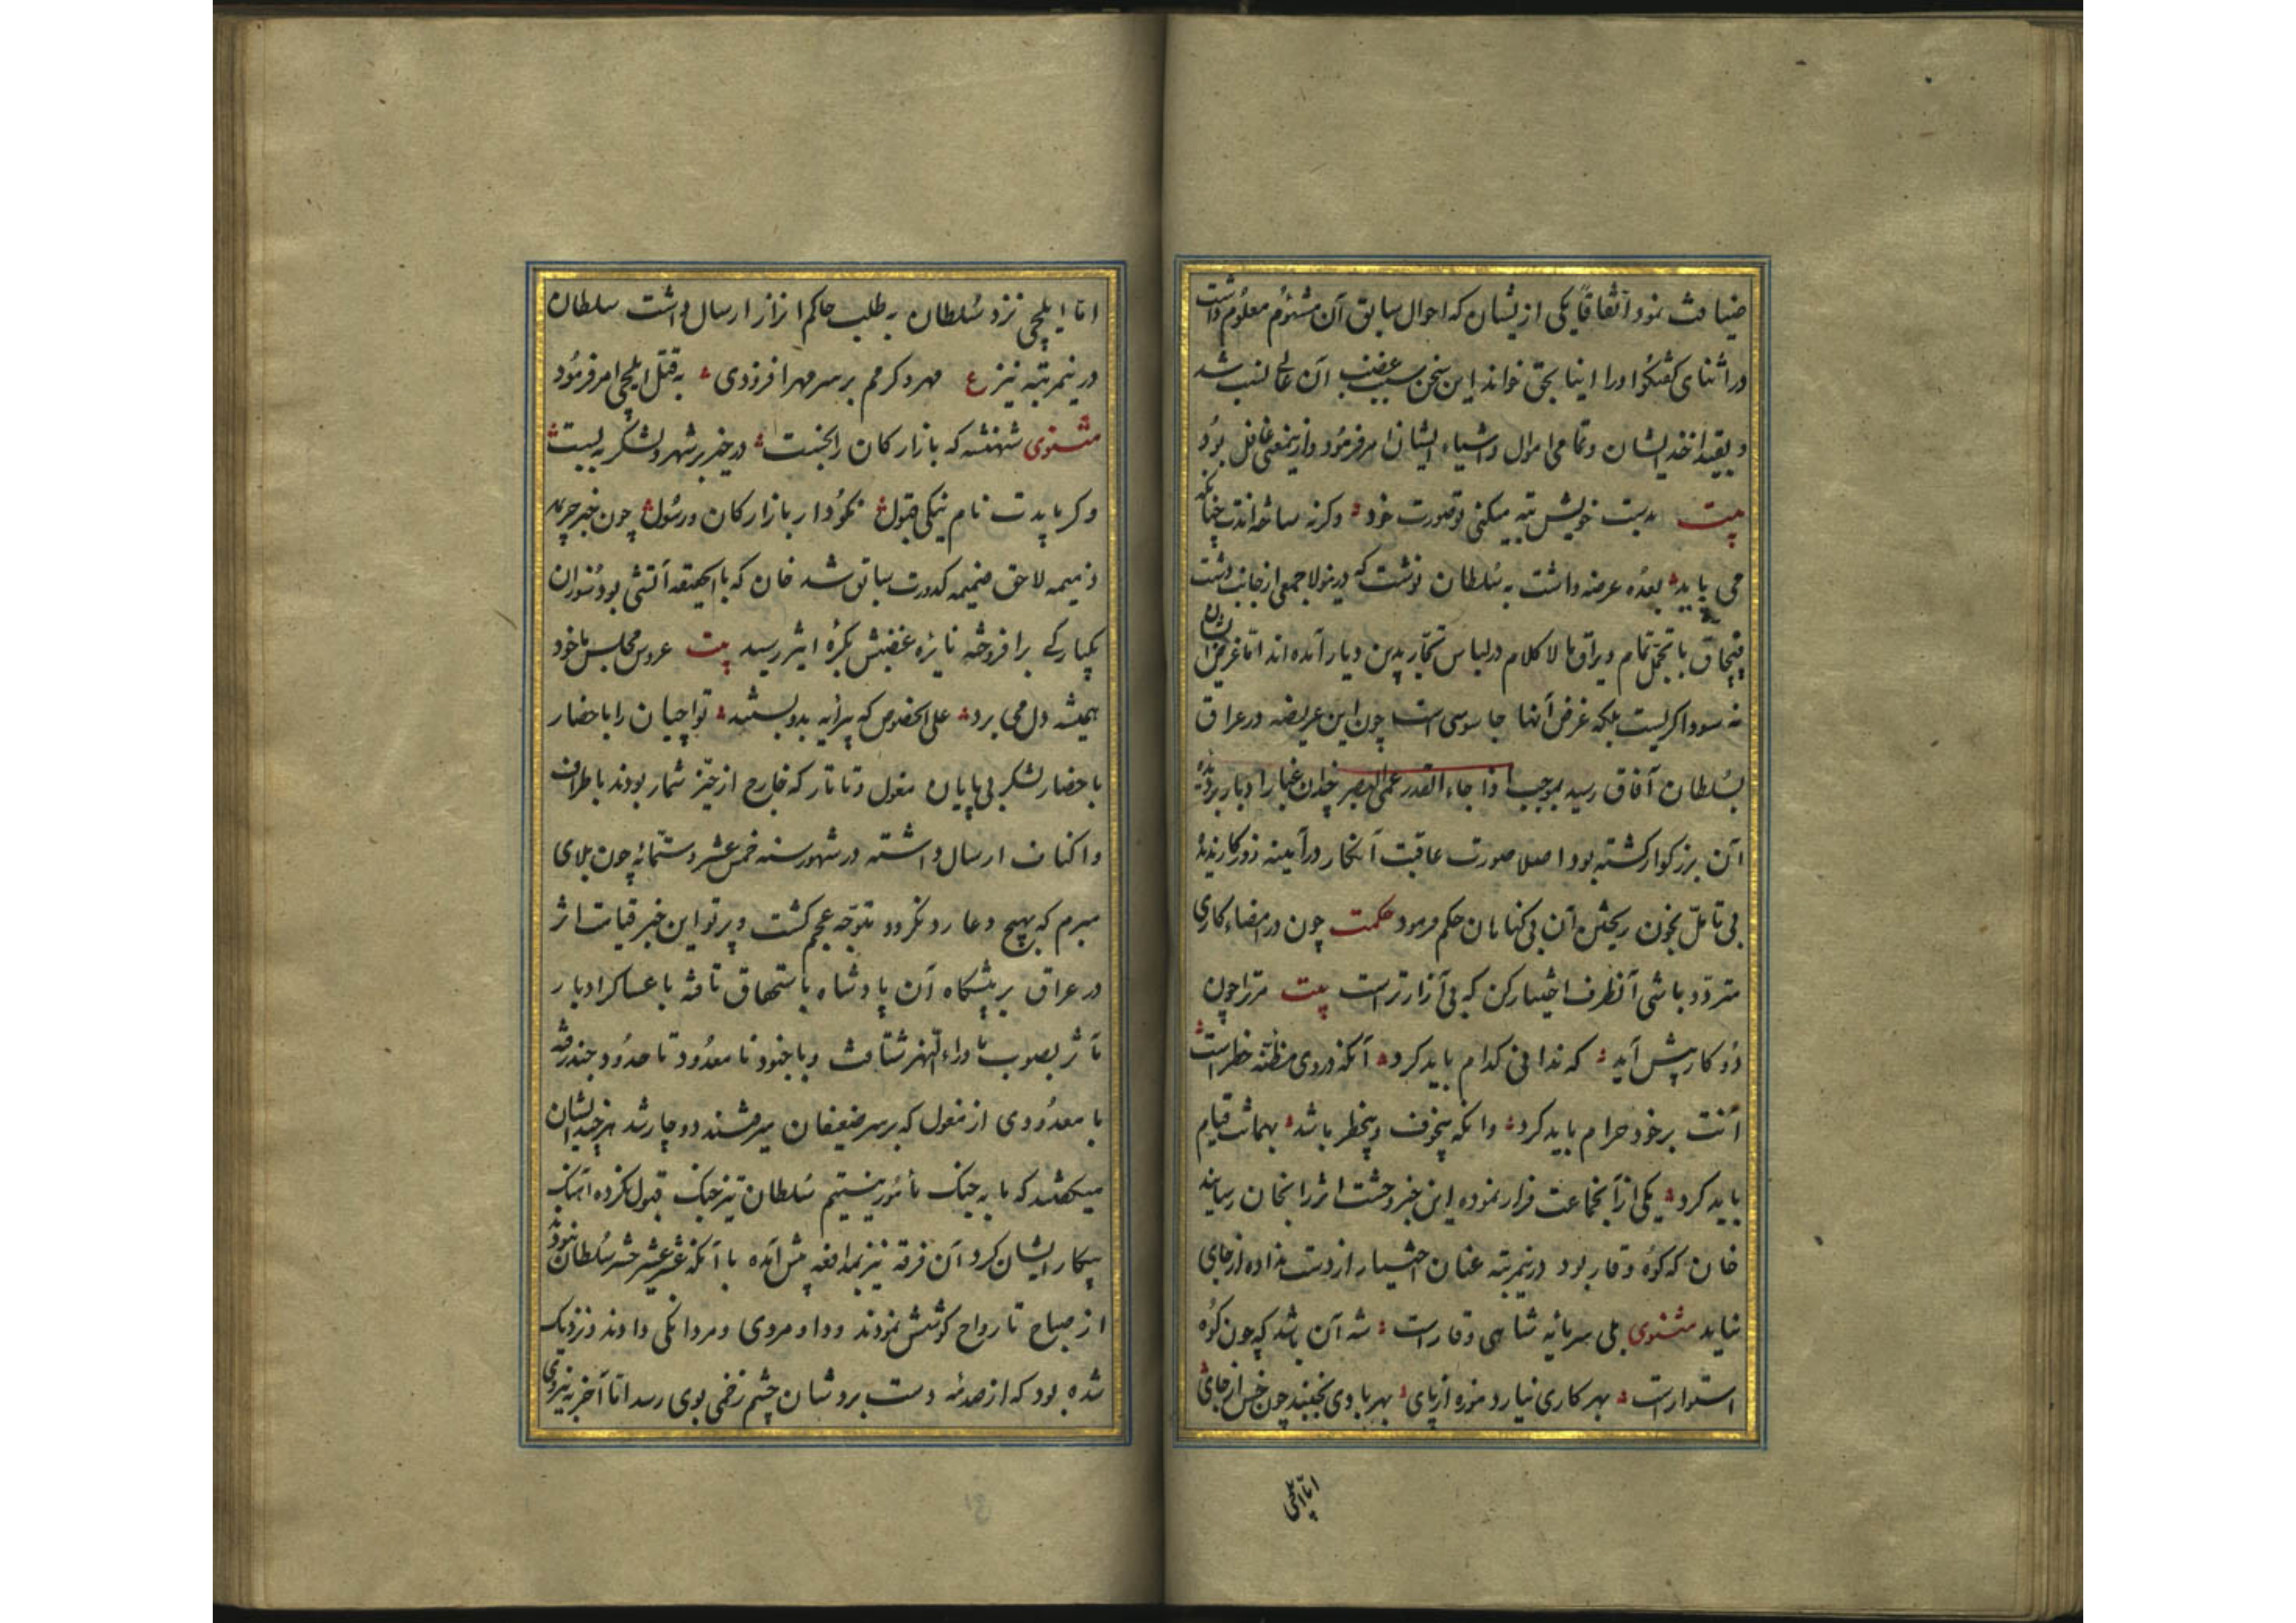 ضیافت نمود اتفاقاً یکی ازیشان که احوال سابق آن مشئوم معلوم داشت
در اثنای کفتکو اورا اینا بحق خواند این سخن سبب غضب آن عالی نسب شد
و بقید اخذ ایشان و تمامی اموال و اشیاء ایشان امر فرمود و ازینمعنی غافل بود
بیت بدست خویش تبه میکنی تو صورت خود وکرنه ساخته اندت چنانکه
می باید بعده عرضه داشت به سلطان نوشت که درینولا جمعی از جانب دشت
قبچاق با تجمل تمام و یراق مالاکلام در لباس تجار بدین دیار آمده اند اما غرض
نه سوداکریست بلکه غرض آنها جاسوسی است چون این عریضه در عراق
بسلطان آفاق رسید بموجب اذا جاء القدر عمی البصر چون غبار ادبار بر دیده
آن بزرکوار کشته بود اصلا صورت عاقبت آنکار در آیینه روزکار ندیده
بی تأمل بخون ریختن آن بی کناهان حکم فرمود حکمت چون در امضاء کاری
متردد باشی آنطرف اختیار کن که بی آزارتر است بیت مرترا چون
دو کار پیش آید که ندانی کدام باید کرد آنکه در وی مظنه خطر است
آنت بر خود حرام باید کرد وانکه بیخوف و بیخطر باشد بهمانت قیام
باید کرد یکی از آنجماعت فرار نموده این خبر وحشت اثر را بخان رسانید
خان که کوه وقار بود درینمرتبه عنان اختیار از دست نداده از جای
نیامد مثنوی بلی سرمایه شاهی وقار است شه آن باشد که چون کوه
استوار است بهر کاری نیارد موزه از پای بهر بادی نجنبد چون خس از جای
اما ایلچی
اما ایلچی نزد سلطان به طلب حاکم اترار ارسال داشت سلطان
درینمرتبه نیز ع مهر و کرمم بر سر مهر افزودی به قتل ایلچی امر فرمود
مثنوی شهنشه که بازارکان را بخست در خیر بر شهر و لشکر ببست
وکر بایدت نام نیکی قبول نکو دار بازارکان و رسول چون خبر جریمه
ذمیمه لاحق ضمیمه کدورت سابق شد خان که بالحقیقه آتشی بود سوزان
یکبارکی برافروخته نایره غضبش بکره اثیر رسید بیت عروس مجلس ما خود
همیشه دل می برد علی الخصوص که پیرایه بدو بستند تواجیان را باحضار
باحضار لشکر بی پایان مغول و تاتار که خارج از حیز شمار بودند باطراف
و اکناف ارسال داشته در شهور سنه خمس عشر و ستمائه چون بلای
مبرم که بهیچ دعا رد نکردد متوجه عجم کشت و پرتو این خبر قیامت اثر
در عراق بر پیشکاه آن پادشاه باستحقاق تافته با عساکر ادبار
مآثر بصوب ماوراء النهر شتافت و با جنود نامعدود تا حدود جند رفته
با معدودی از مغول که بر سر ضعیفان میرفتند دو چار شد هر چند ایشان
میکفتند که ما به جنک مأمور نیستیم سلطان تیز جنک قبول نکرده آهنک
پیکار ایشان کرد آن فرقه نیز بمدافعه پیش آمده با آنکه عشر عشیر حشر سلطان نبودند
از صباح تا رواح کوشش نمودند و داد مردی و مردانکی دادند و نزدیک
شده بود که از صدمه دست بردشان چشم زخمی بوی رسد اما آخر به نیروی